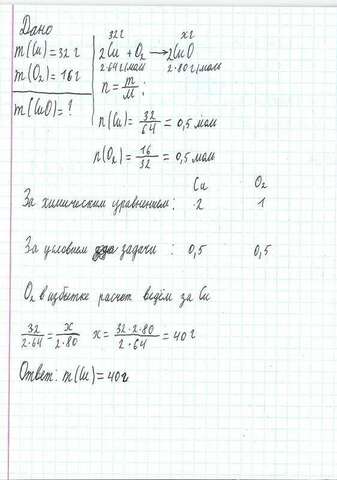 Дано
m(Cu)=32г
m(O₂)=16г
m(CuO)=?
32г xг
2Cu + O₂ → 2CuO
2·64г/мол 2·80г/мол
n = m/M ;
n(Cu) = 32/64 = 0,5 мол
n(O₂) = 16/32 = 0,5 мол
Cu O₂
За химическим уравнением: 2 1
За условием задачи : 0,5 0,5
O₂ в избытке расчет ведём за Cu
32/2·64 = x/2·80 x = 32·2·80/2·64 = 40г
Ответ: m(Cu)=40г